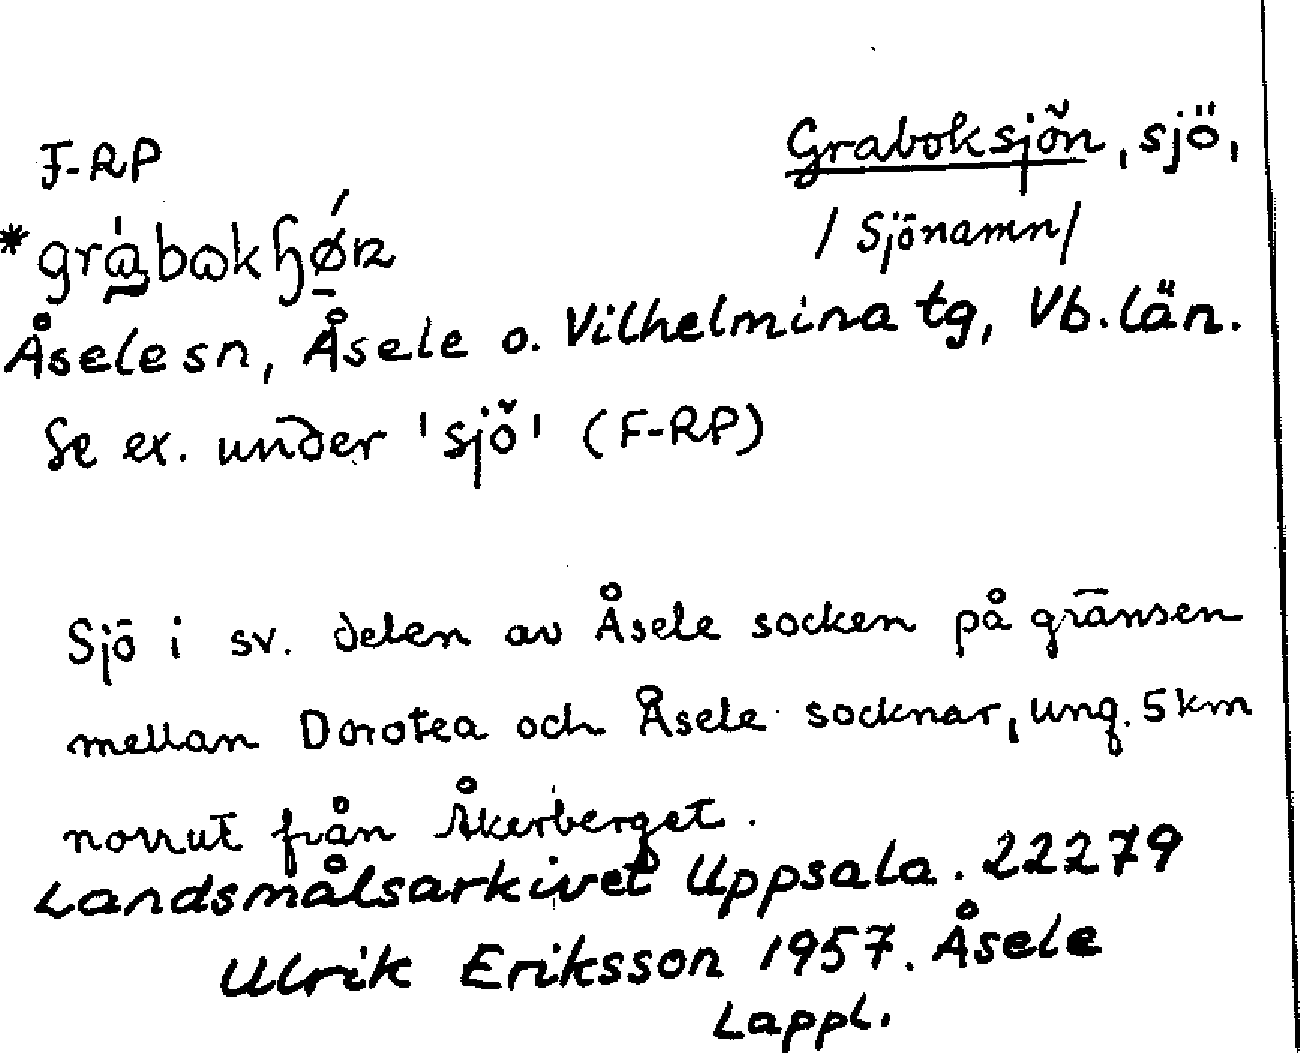 Graboksjön, sjö,
F-RP
/Sjönamn/
Åsele sn, Åsele o. Vilhelmina tg, Vb. län.
Se ex. under 'sjö' (F-RP)
Sjö i sv. delen av Åsele socken på gränsen
mellan Dorotea och Åsele socknar, ung. 5 km
norrut från Åkerberget.
Landsmålsarkivet Uppsala. 22279
Ulrik Eriksson 1957. Åsele
Lappl.